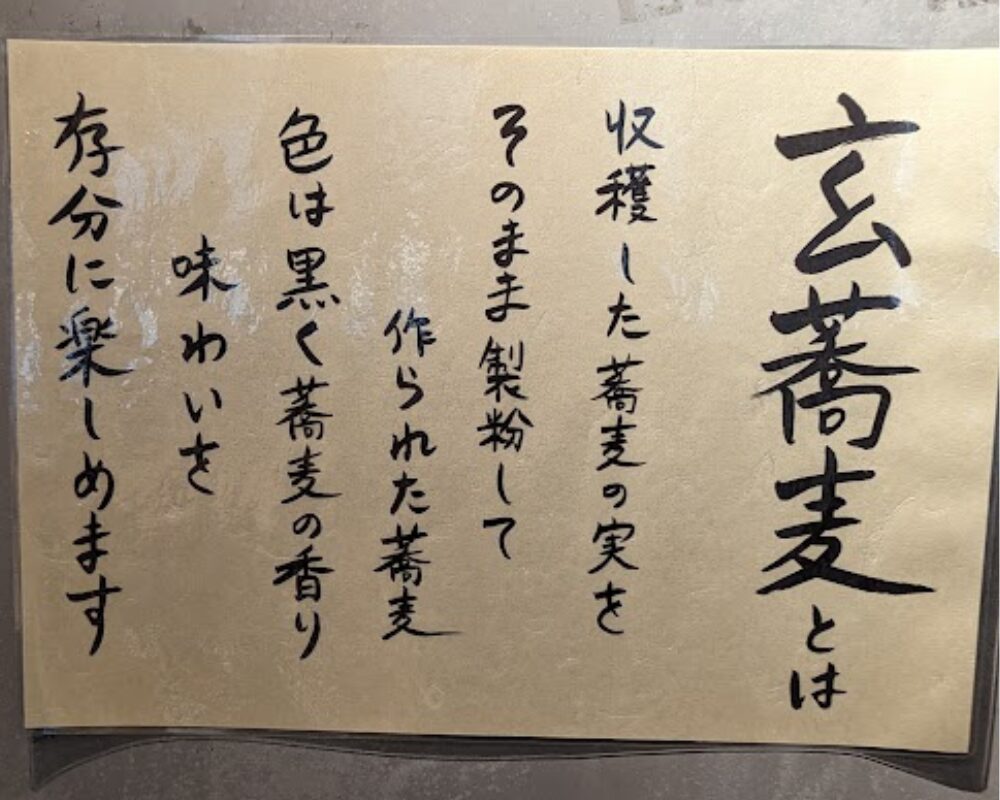 玄蕎麦とは
収穫した蕎麦の実を
そのまま製粉して
作られた蕎麦
色は黒く蕎麦の香り
味わいを
存分に楽しめます